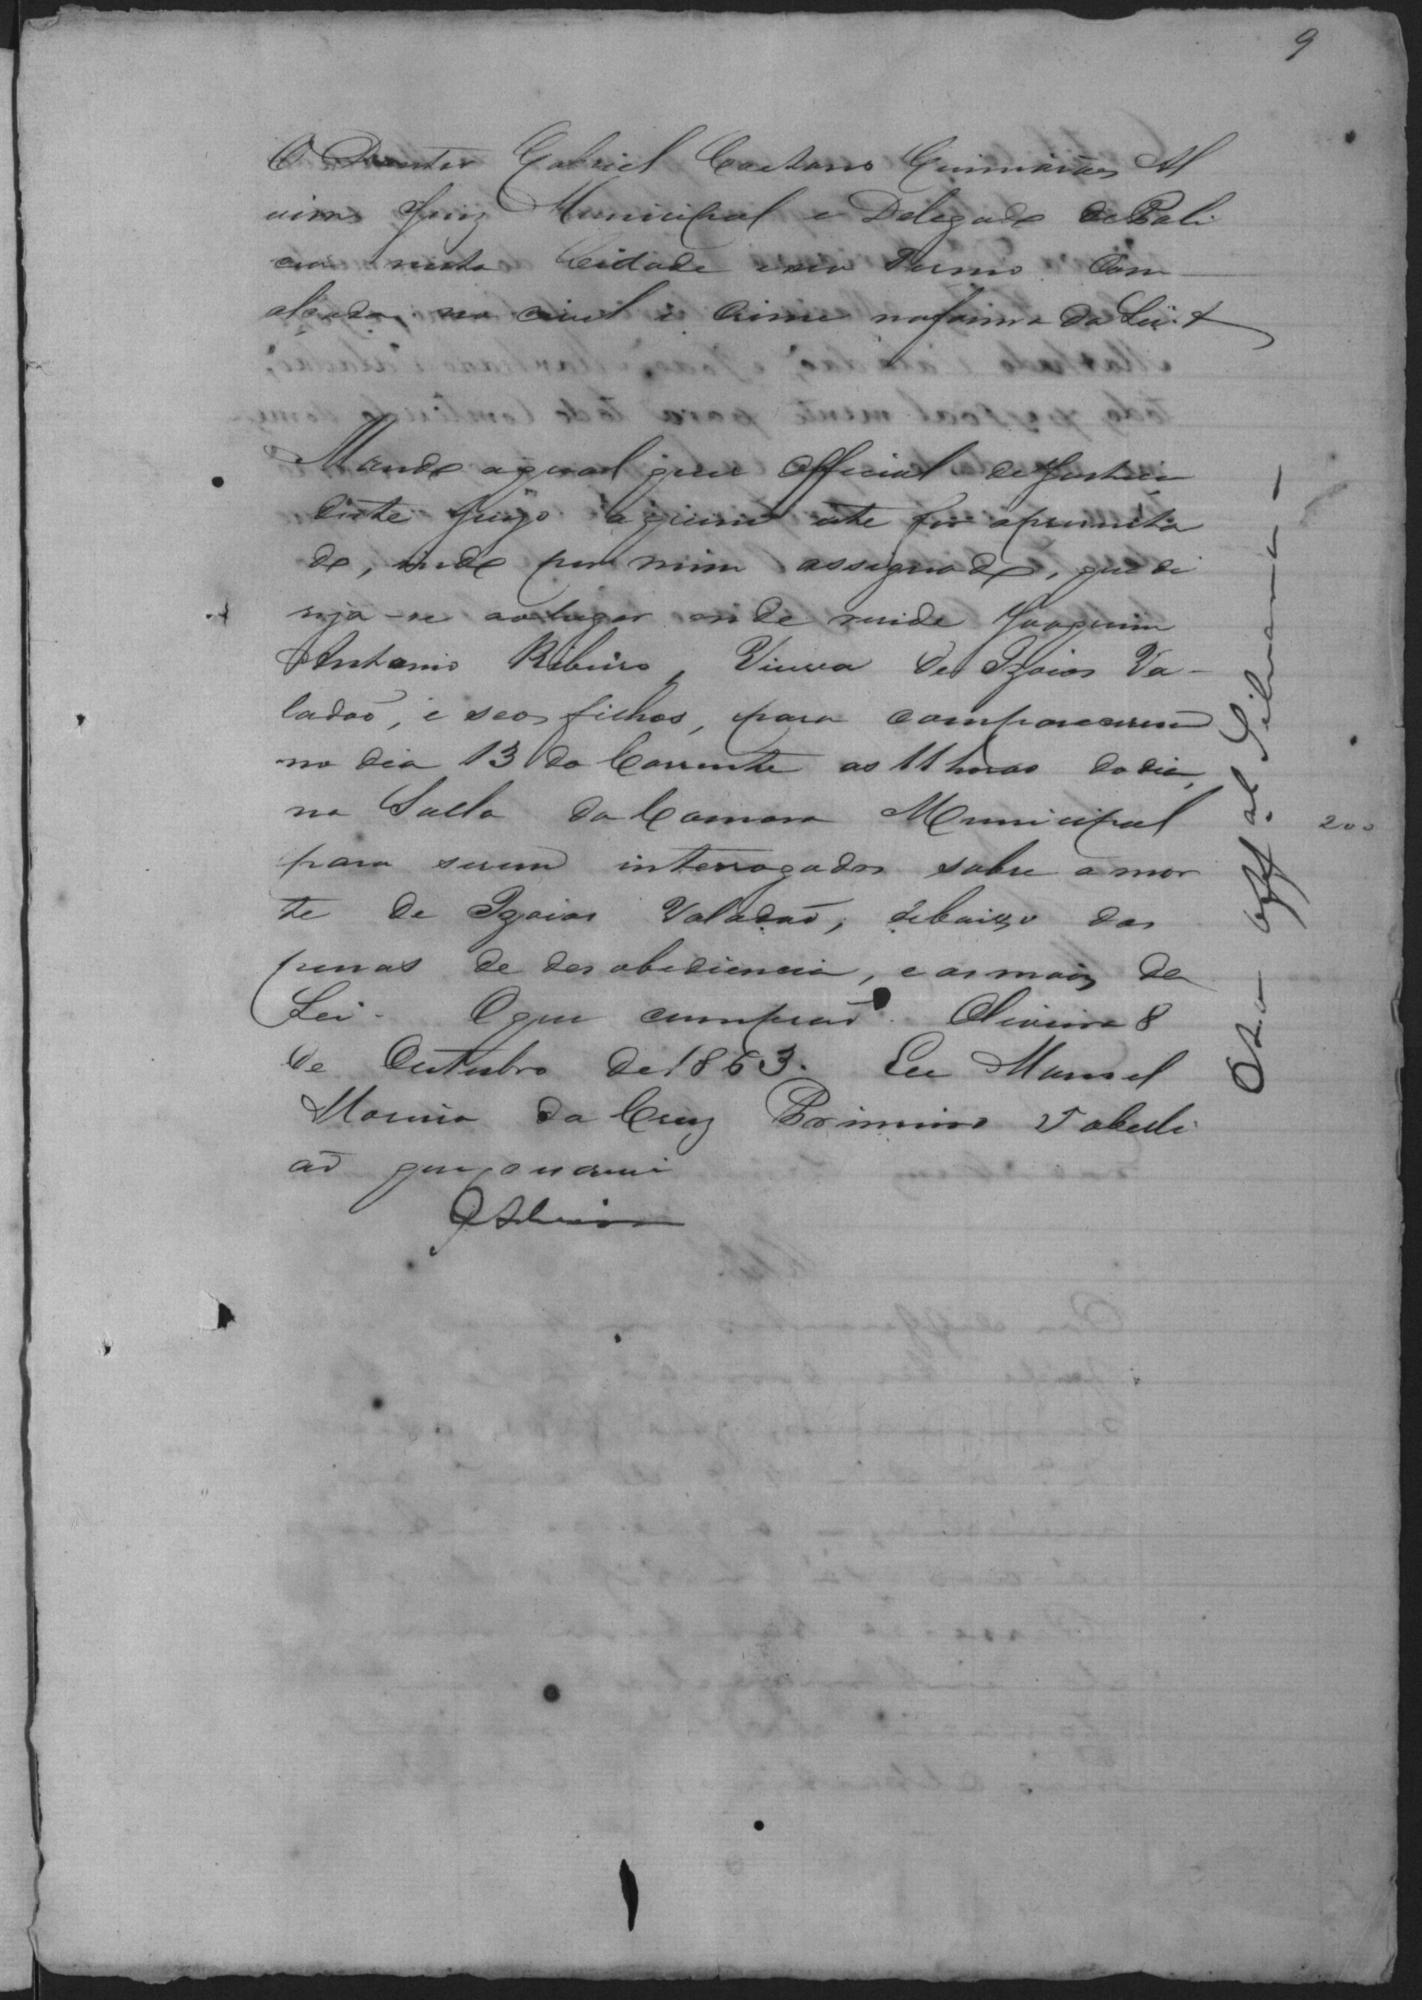 9
O Doutor Gabriel Caetano Guimarães Al
vim Juiz Municipal e Delegado de Poli
cia nesta Cidade e seu Termo Com
alçada no civel e crime na forma da Lei &
Mando a qual quer Official de Justiça
deste Juizo a quem este for apresenta
do, indo por mim assignado, que di
rija-se ao lugar onde reside Joaquim
Antonio Ribeiro, Viuva de Izaias Va-
ladaõ, e seos filhos, para comparecerem
no dia 13 do Corrente as 11 horas do dia,
na Salla da Camara Municipal
para serem interrogados sobre a mor
te de Izaias Valadaõ, debaixo das
penas de desobediencia, e as mais da
Lei. O que cumpraõ. Oliveira 8
de Outubro de 1863. Eu Manoel
da Cruz Tabelli
aõ que o escrevi
GAlvim
Off.al
200